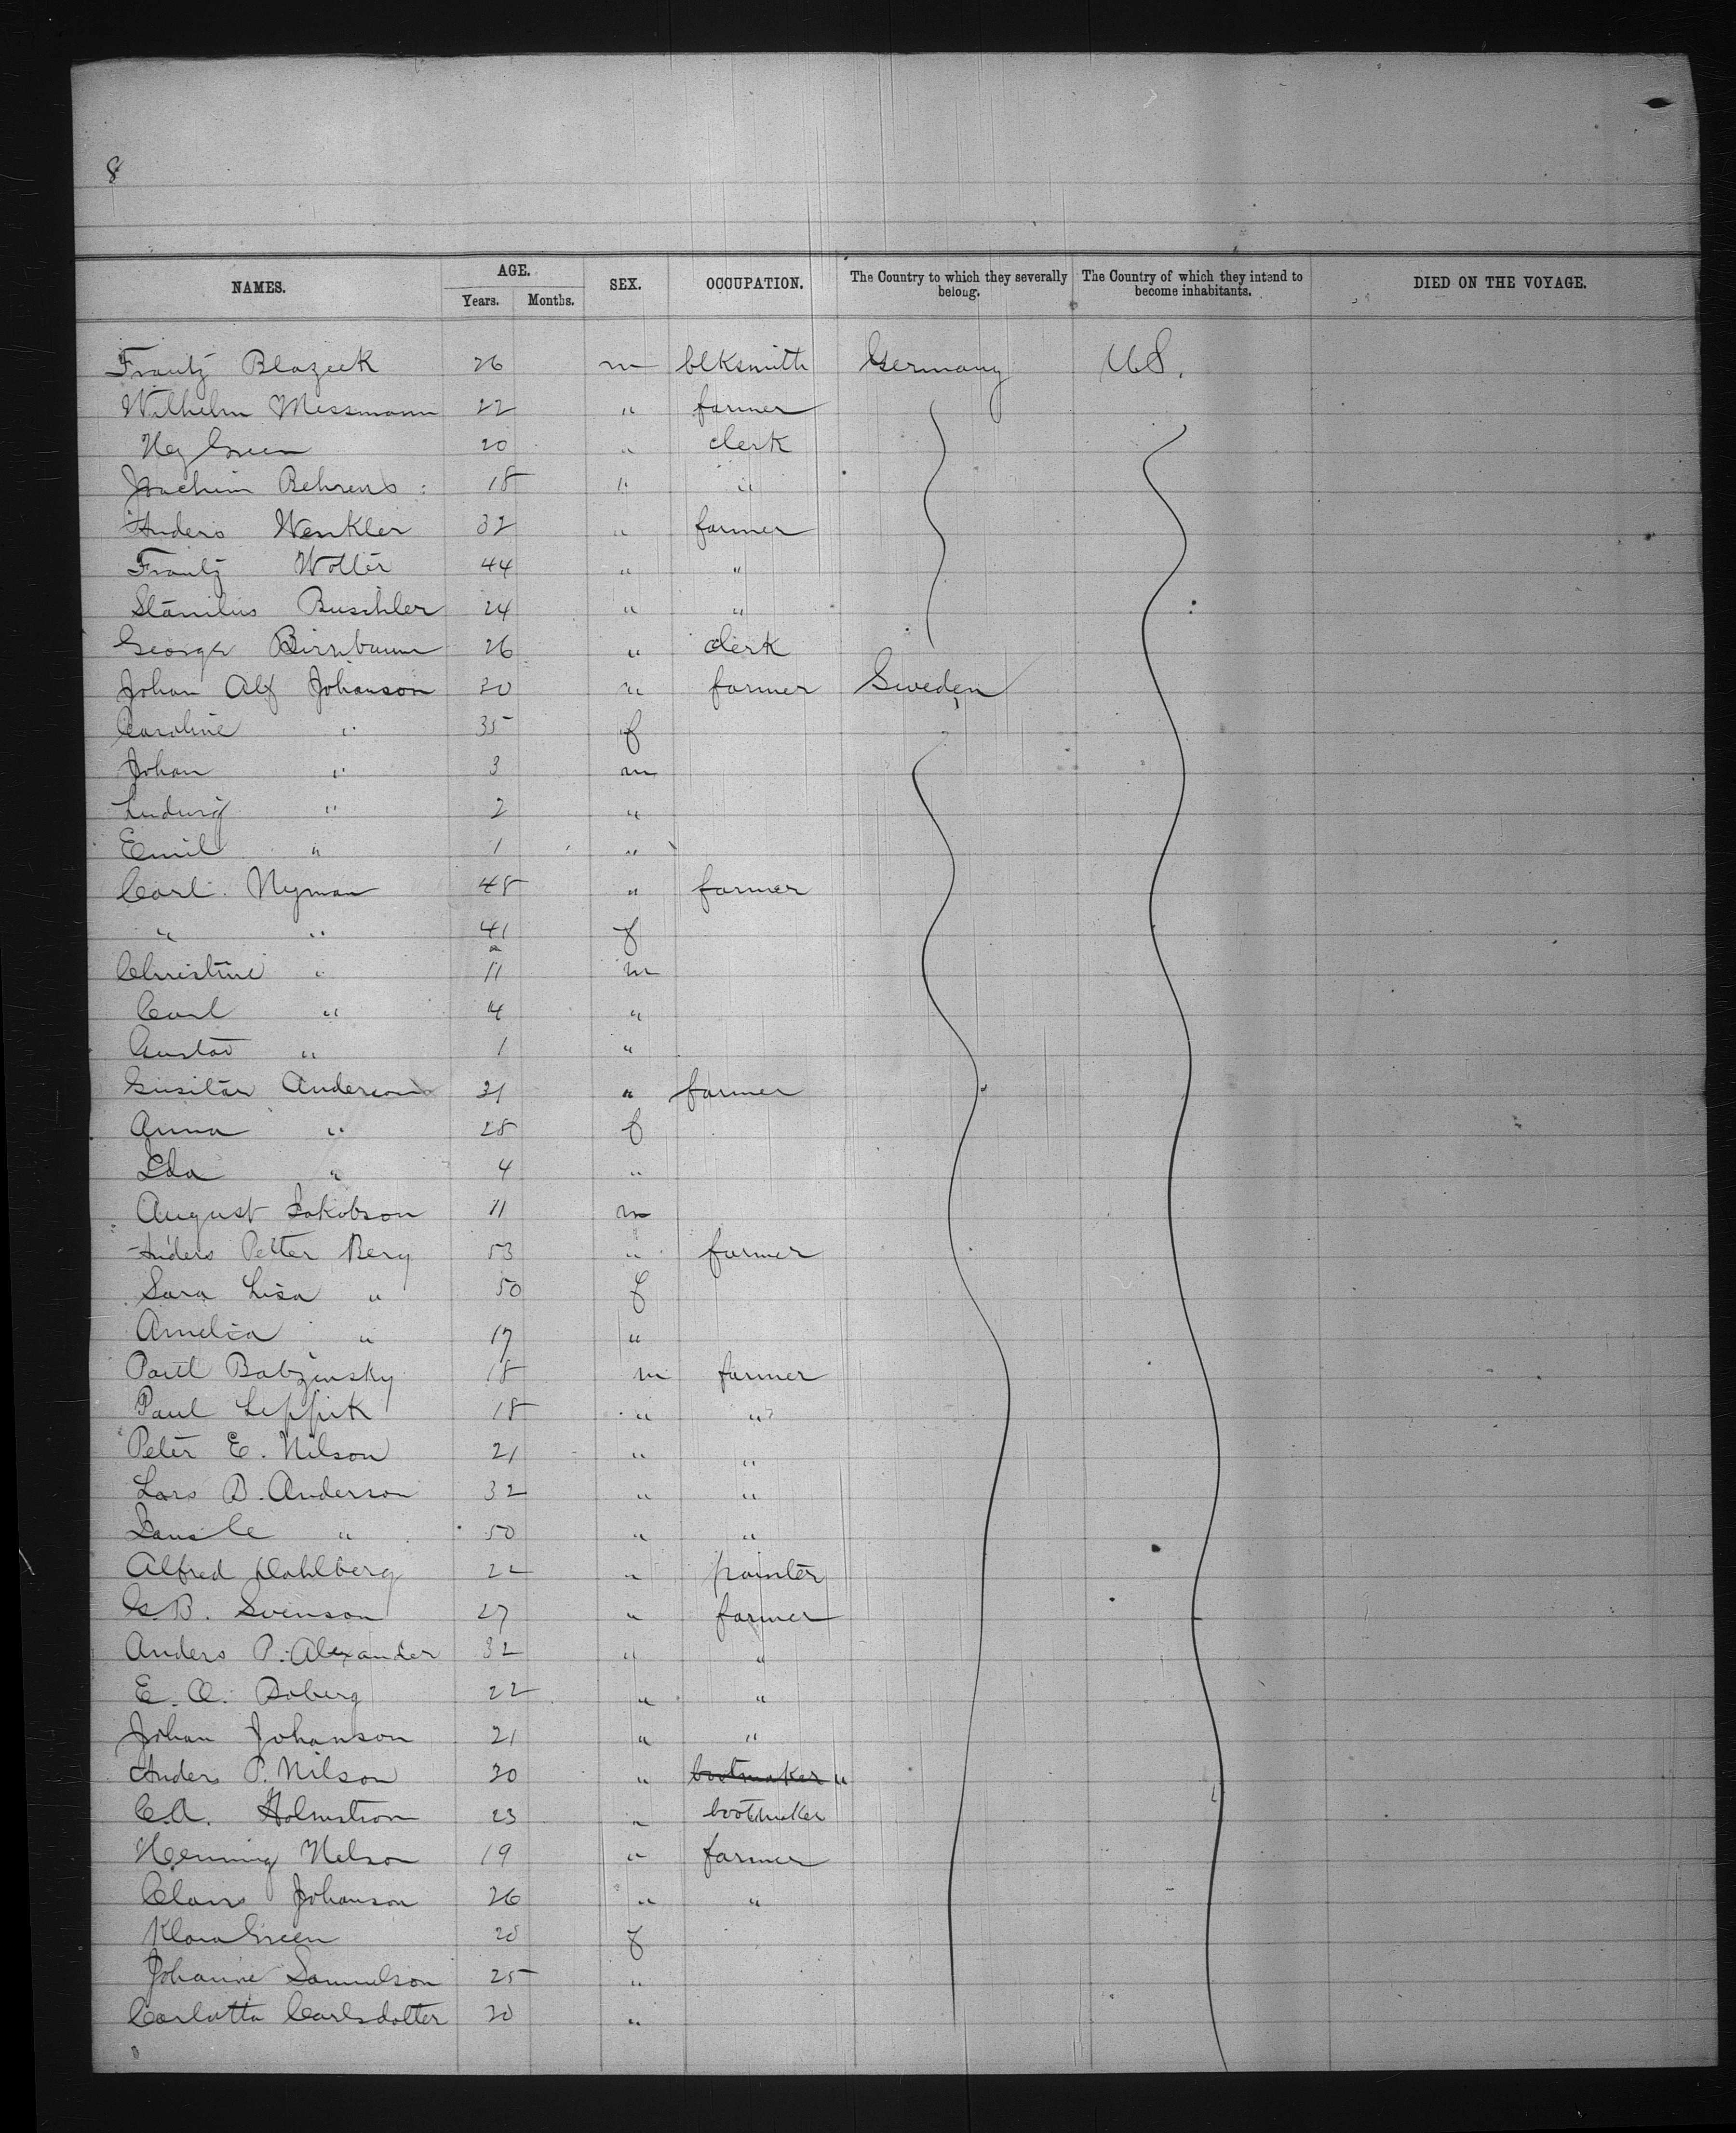 8
NAMES. AGE. Years. Months. SEX. OCCUPATION. The Country to which they severally belong. The Country of which they intend to become inhabitants. DIED ON THE VOYAGE.
Frantz Blazeck 26 m blksmith Germany US.
Wilhelm Messmann 22 " farmer
Green 20 " clerk
Joachim Behrens 18 " "
Anders Wenkler 32 " farmer
Frantz Wolter 44 " "
Buschler 24 " "
George Birnbaum 26 " clerk
Johan Alf Johanson 20 " farmer Sweden
Caroline " 35 f
Johan " 3 m
Ludwig " 2 "
Emil " 1 "
Carl Nyman 48 " farmer
" " 41 f
Christine " 11 m
Carl " 4 "
Gustav " 1 "
Anderson 31 " farmer
Anna " 28 f
Ida " 4 "
August Jakobson 11 m
Anders Petter Berg 53 " farmer
Sara Lisa " 50 f
Amelia " 17 "
Paul Babzinsky 18 m farmer
Paul Leppik 18 " "
Peter E. Nilson 21 " "
Lars B. Anderson 32 " "
" 50 " "
Alfred Dahlberg 22 " painter
G.B. Svenson 27 " farmer
Anders P. Alexander 32 " "
E. O. Boberg 22 " "
Johan Johanson 21 " "
Anders P. Nilson 20 " bootmaker "
C.A. Holmstrom 23 " bootmaker
Henning Nelson 19 " farmer
Claus Johanson 26 " "
Klara Green 20 f
Johanne Samuelson 25 "
Carlotta Carlsdotter 20 "